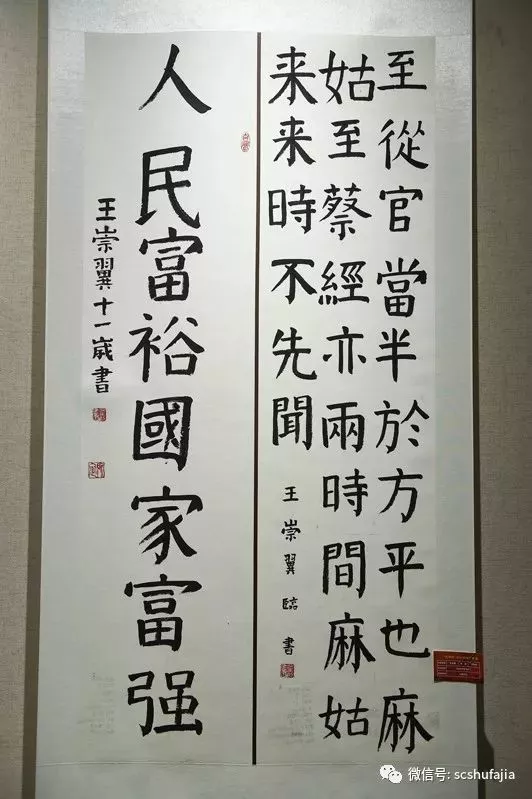 至從官當半於方平也麻
姑至蔡經亦兩時間麻姑
来来時不先聞
王崇翼臨書
人民富裕國家富强
王崇翼十一歲書
微信号: scshufajia